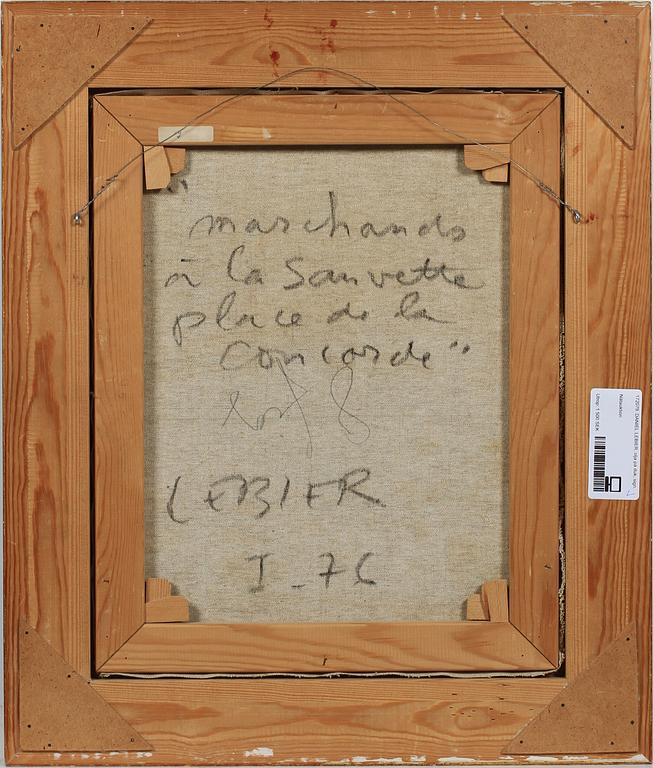 " marchands
à la Sauvette
place de la
Concorde "
LEBIER
I_76
172079. DANIEL LEBIER, olja på duk, sign.
Nätauktion
Utrop: 1 500 SEK